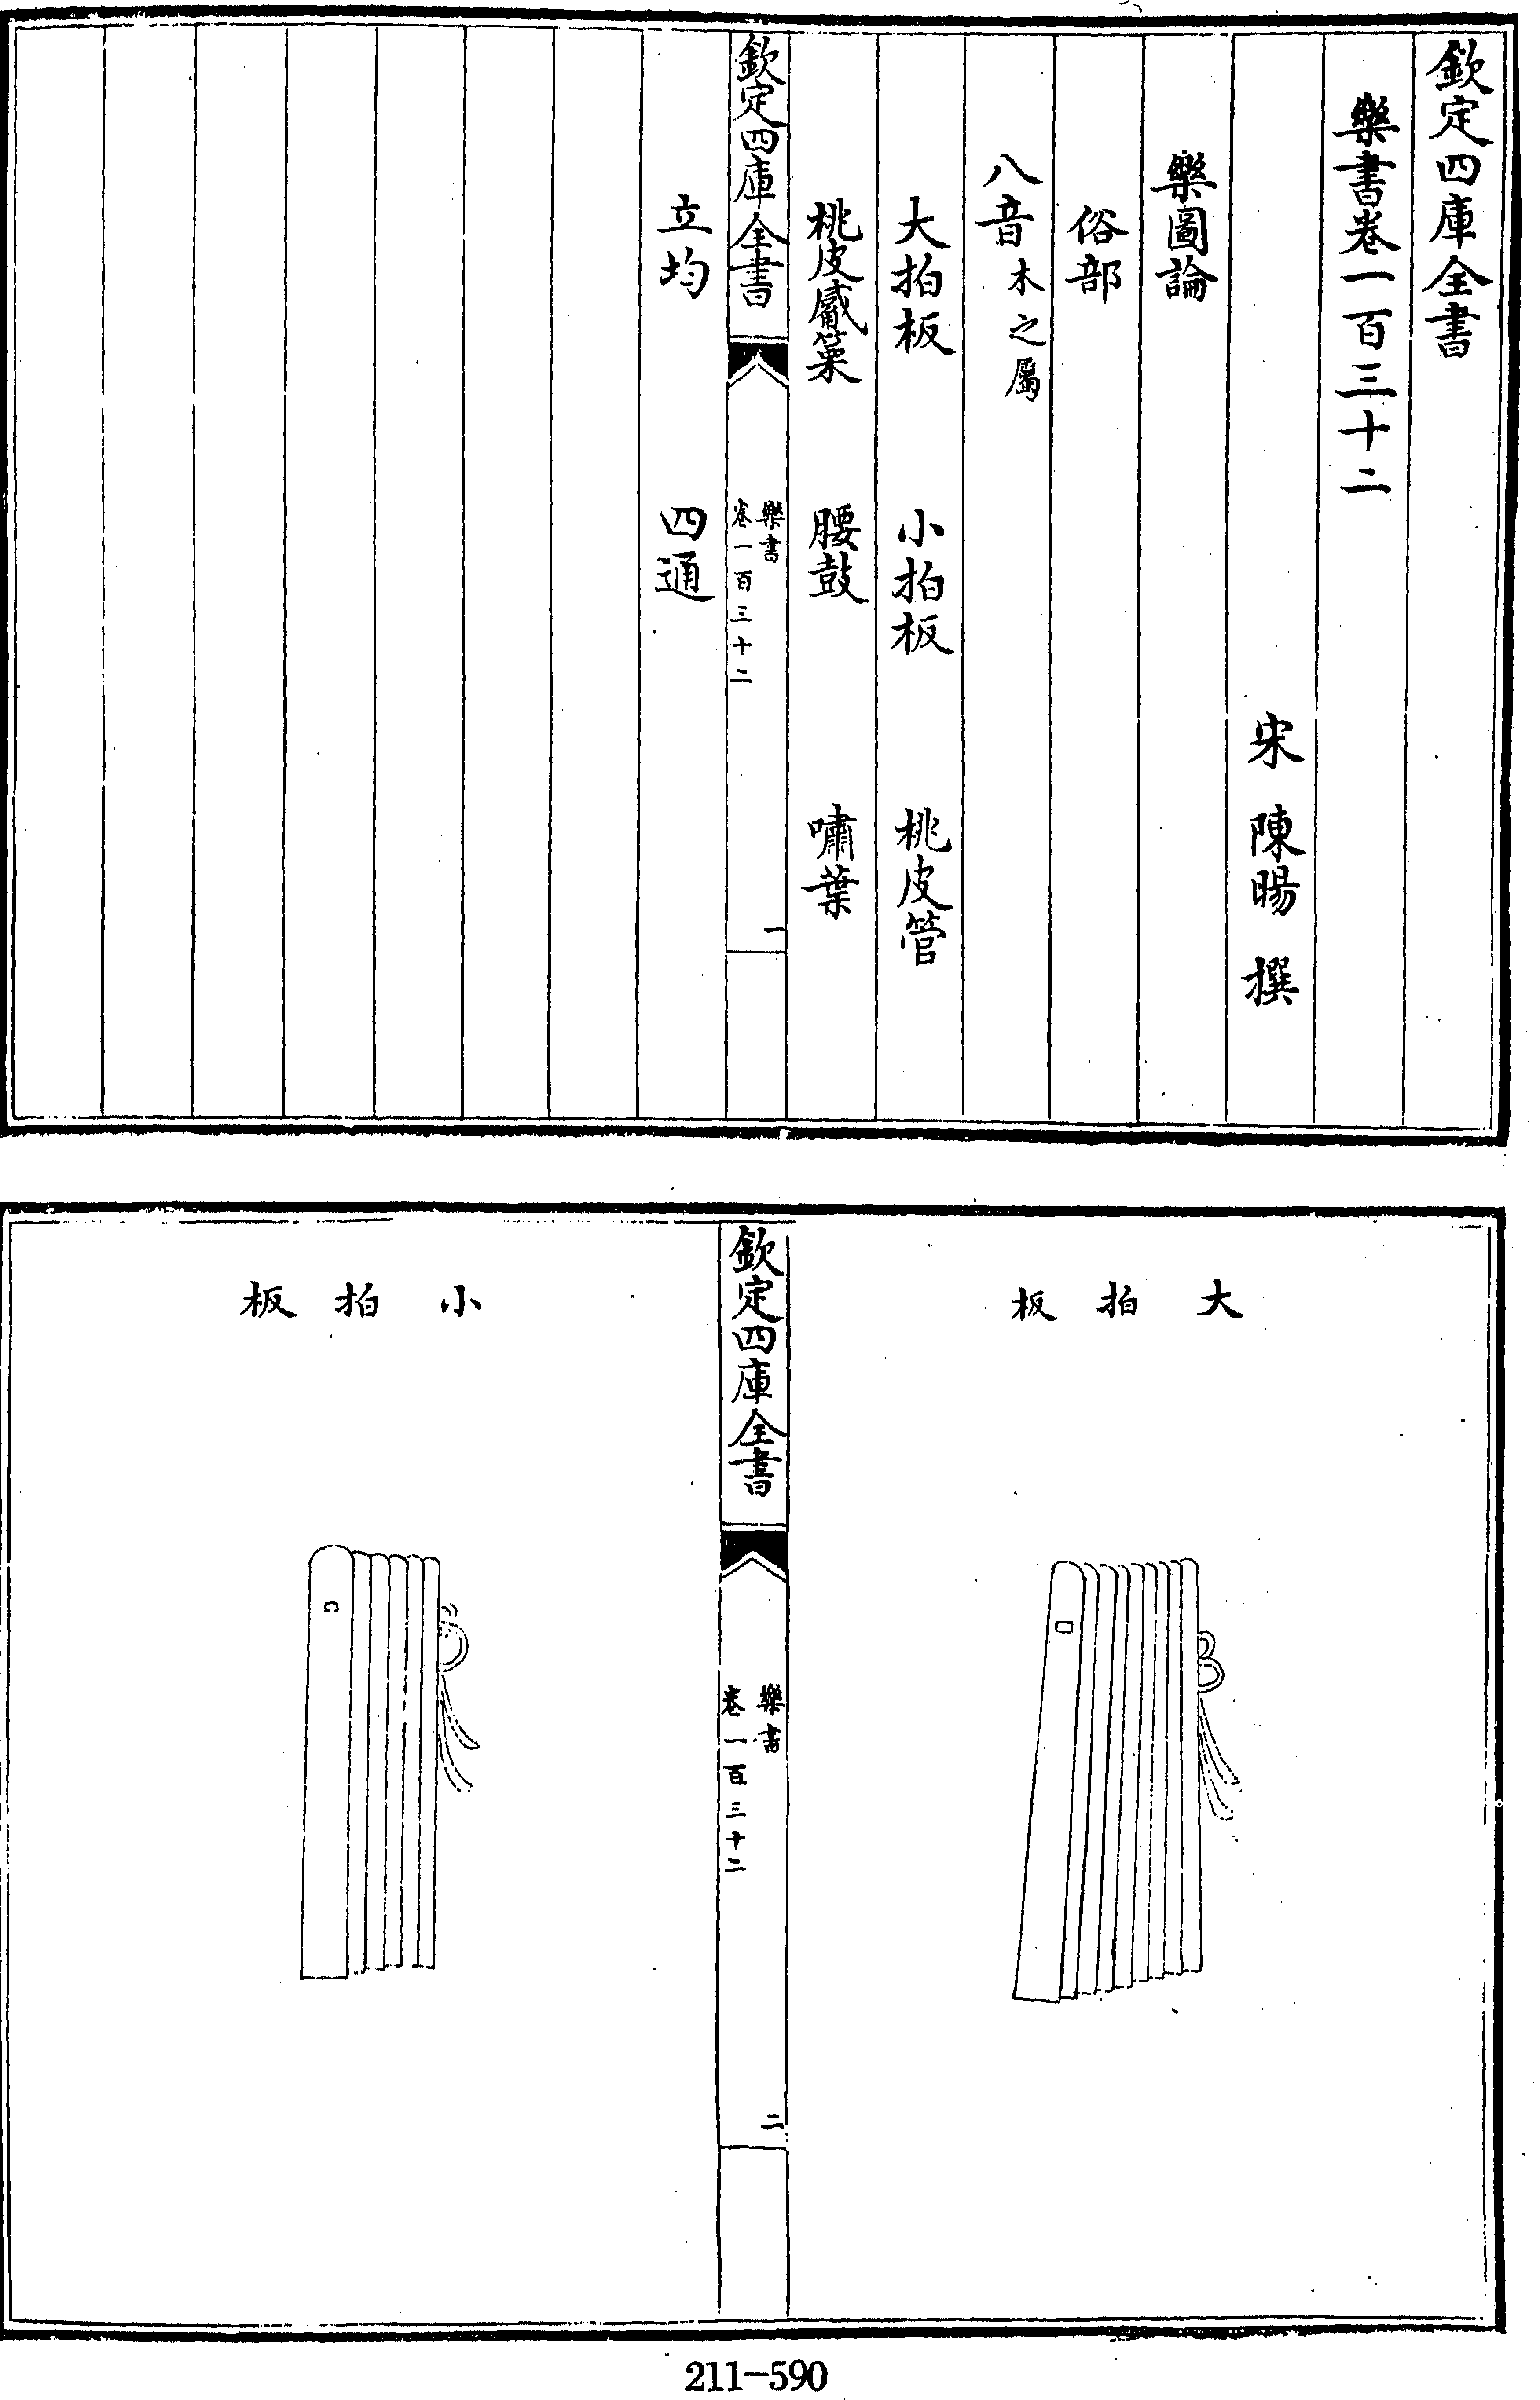 欽定四庫全書
樂書卷一百三十二
宋 陳暘 撰
樂圖論
俗部
八音木之屬
大拍板 小拍板 桃皮管
桃皮觱篥 腰鼓 嘯葉
欽定四庫全書
樂書
卷一百三十二
一
立均 四通
大拍板
欽定四庫全書
樂書
卷一百三十二
二
小拍板
211-590